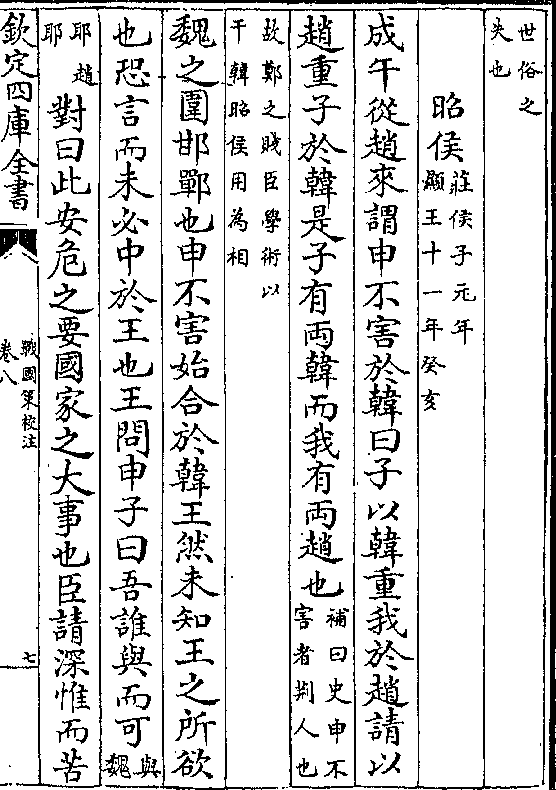 世俗之
失也
昭侯
莊侯子元年
顯王十一年癸亥
成午從趙來謂申不害於韓曰子以韓重我於趙請以
趙重子於韓是子有兩韓而我有兩趙也
補曰史申不
害者荆人也
故鄭之賤臣學術以
干韓昭侯用為相
魏之圍邯鄲也申不害始合於韓王然未知王之所欲
也恐言而未必中於王也王問申子曰吾誰與而可
與
魏
耶趙
耶
對曰此安危之要國家之大事也臣請深惟而苦
欽定四庫全書
戰國策校注
卷八
七